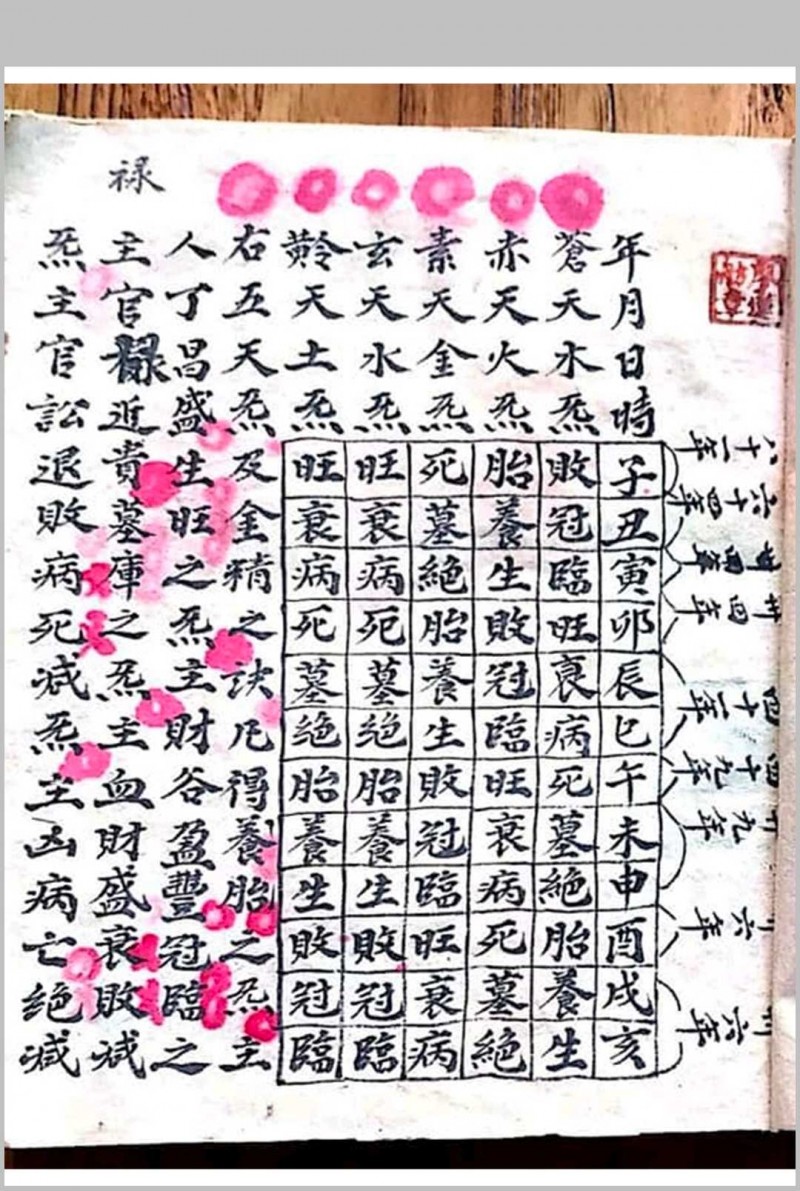 六十四年
四十二年
四十九年
十九年
年月日時子丑寅卯辰巳午未申酉戌亥
蒼天水炁敗冠臨旺衰病死墓絕胎養生
赤天火炁胎養生敗冠臨旺衰病死墓絕
素天金炁死墓絕胎養生敗冠臨旺衰病
玄天水炁旺衰病死墓绝胎養生敗冠臨
黅天土炁旺衰病死墓绝胎養生敗冠臨
右五天炁及金精之訣凡得養胎之炁主
人丁昌盛生旺之炁主財谷盈豐冠臨之
禄
主官禄近貴墓庫之炁主血財盛衰敗减
炁主官訟退敗病死减炁主凶病亡绝减